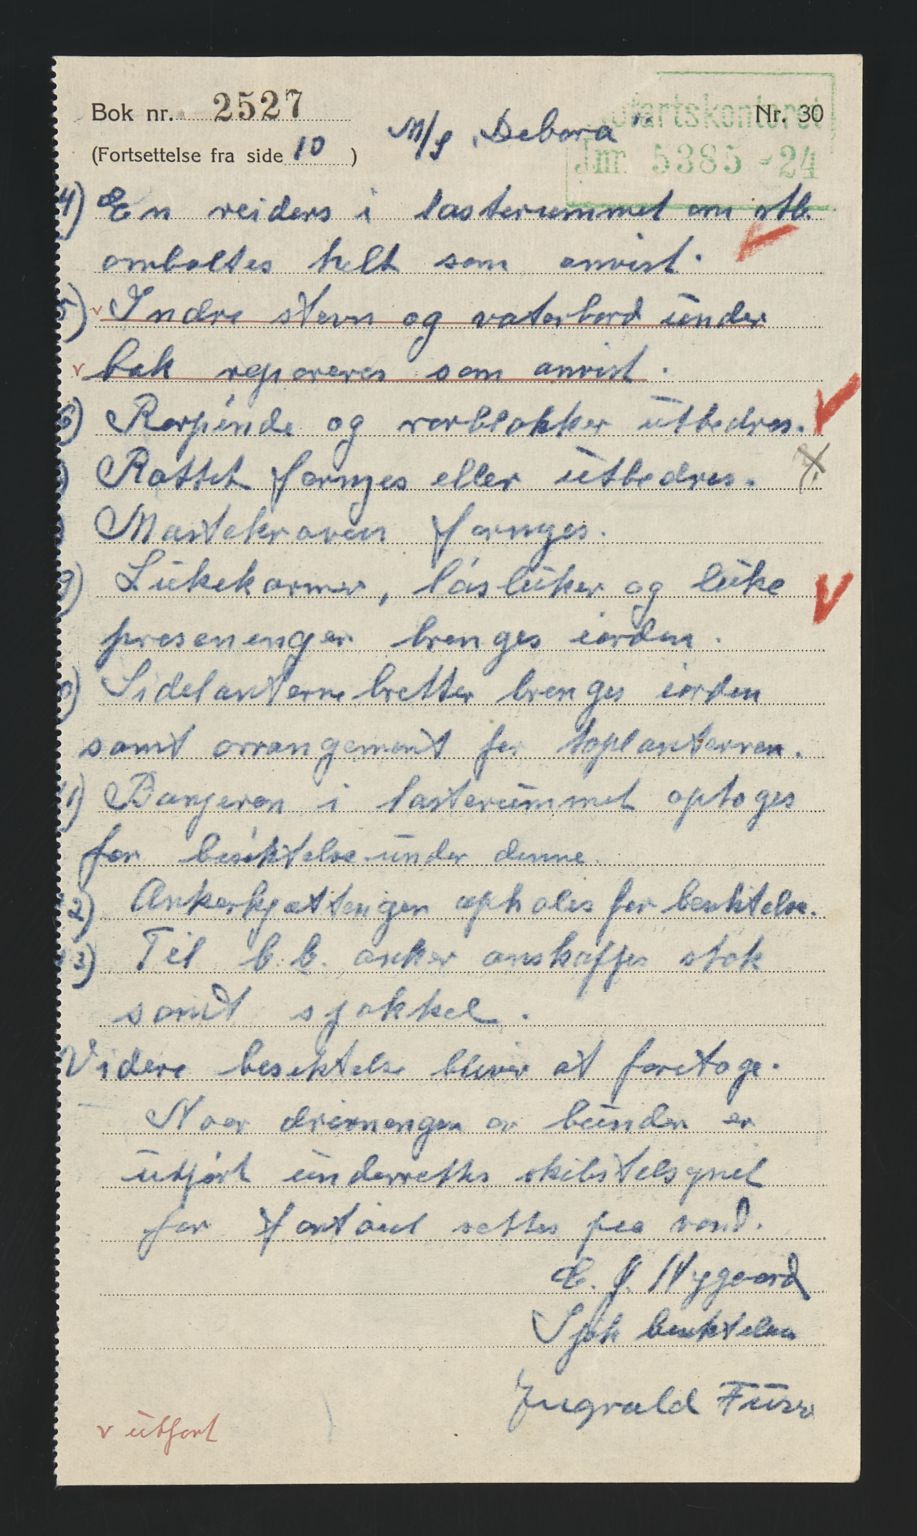 Bok nr. 2527
(Fortsettelse fra side 10 )
M/S "Debora"
Nr. 30
Sjøfartskontoret
Jnr. 5385 - 24
4) En reiders i lasterummet om stb.
omboltes helt som anvist.
5) v Indre stevn og vaterbord under
v bak repareres som anvist.
6) Rorpinde og rorblokker utbedres.
) Rattet fornyes eller utbedres.
) Mastekraven fornyes.
9) Lukekarmer, låsluker og luke
presenenger brenges iorden.
0) Sidelanternebretter brenges iorden
samt arrangement for toplanternen.
11) Banjeren i lasterummet optages
for besiktelse under denne.
12) Ankerkjættingen ophales for besiktelse.
13) Til b.b. anker anskaffes stok
samt sjakkel.
Videre besiktelse bliver at foretage.
Naar drivnengen av bunden er
utført underrettes skibstilsynet
før fartøiet settes paa vand.
E. J. Nygaard
Sjøk besiktelsen
Ingvald Furø
v utført